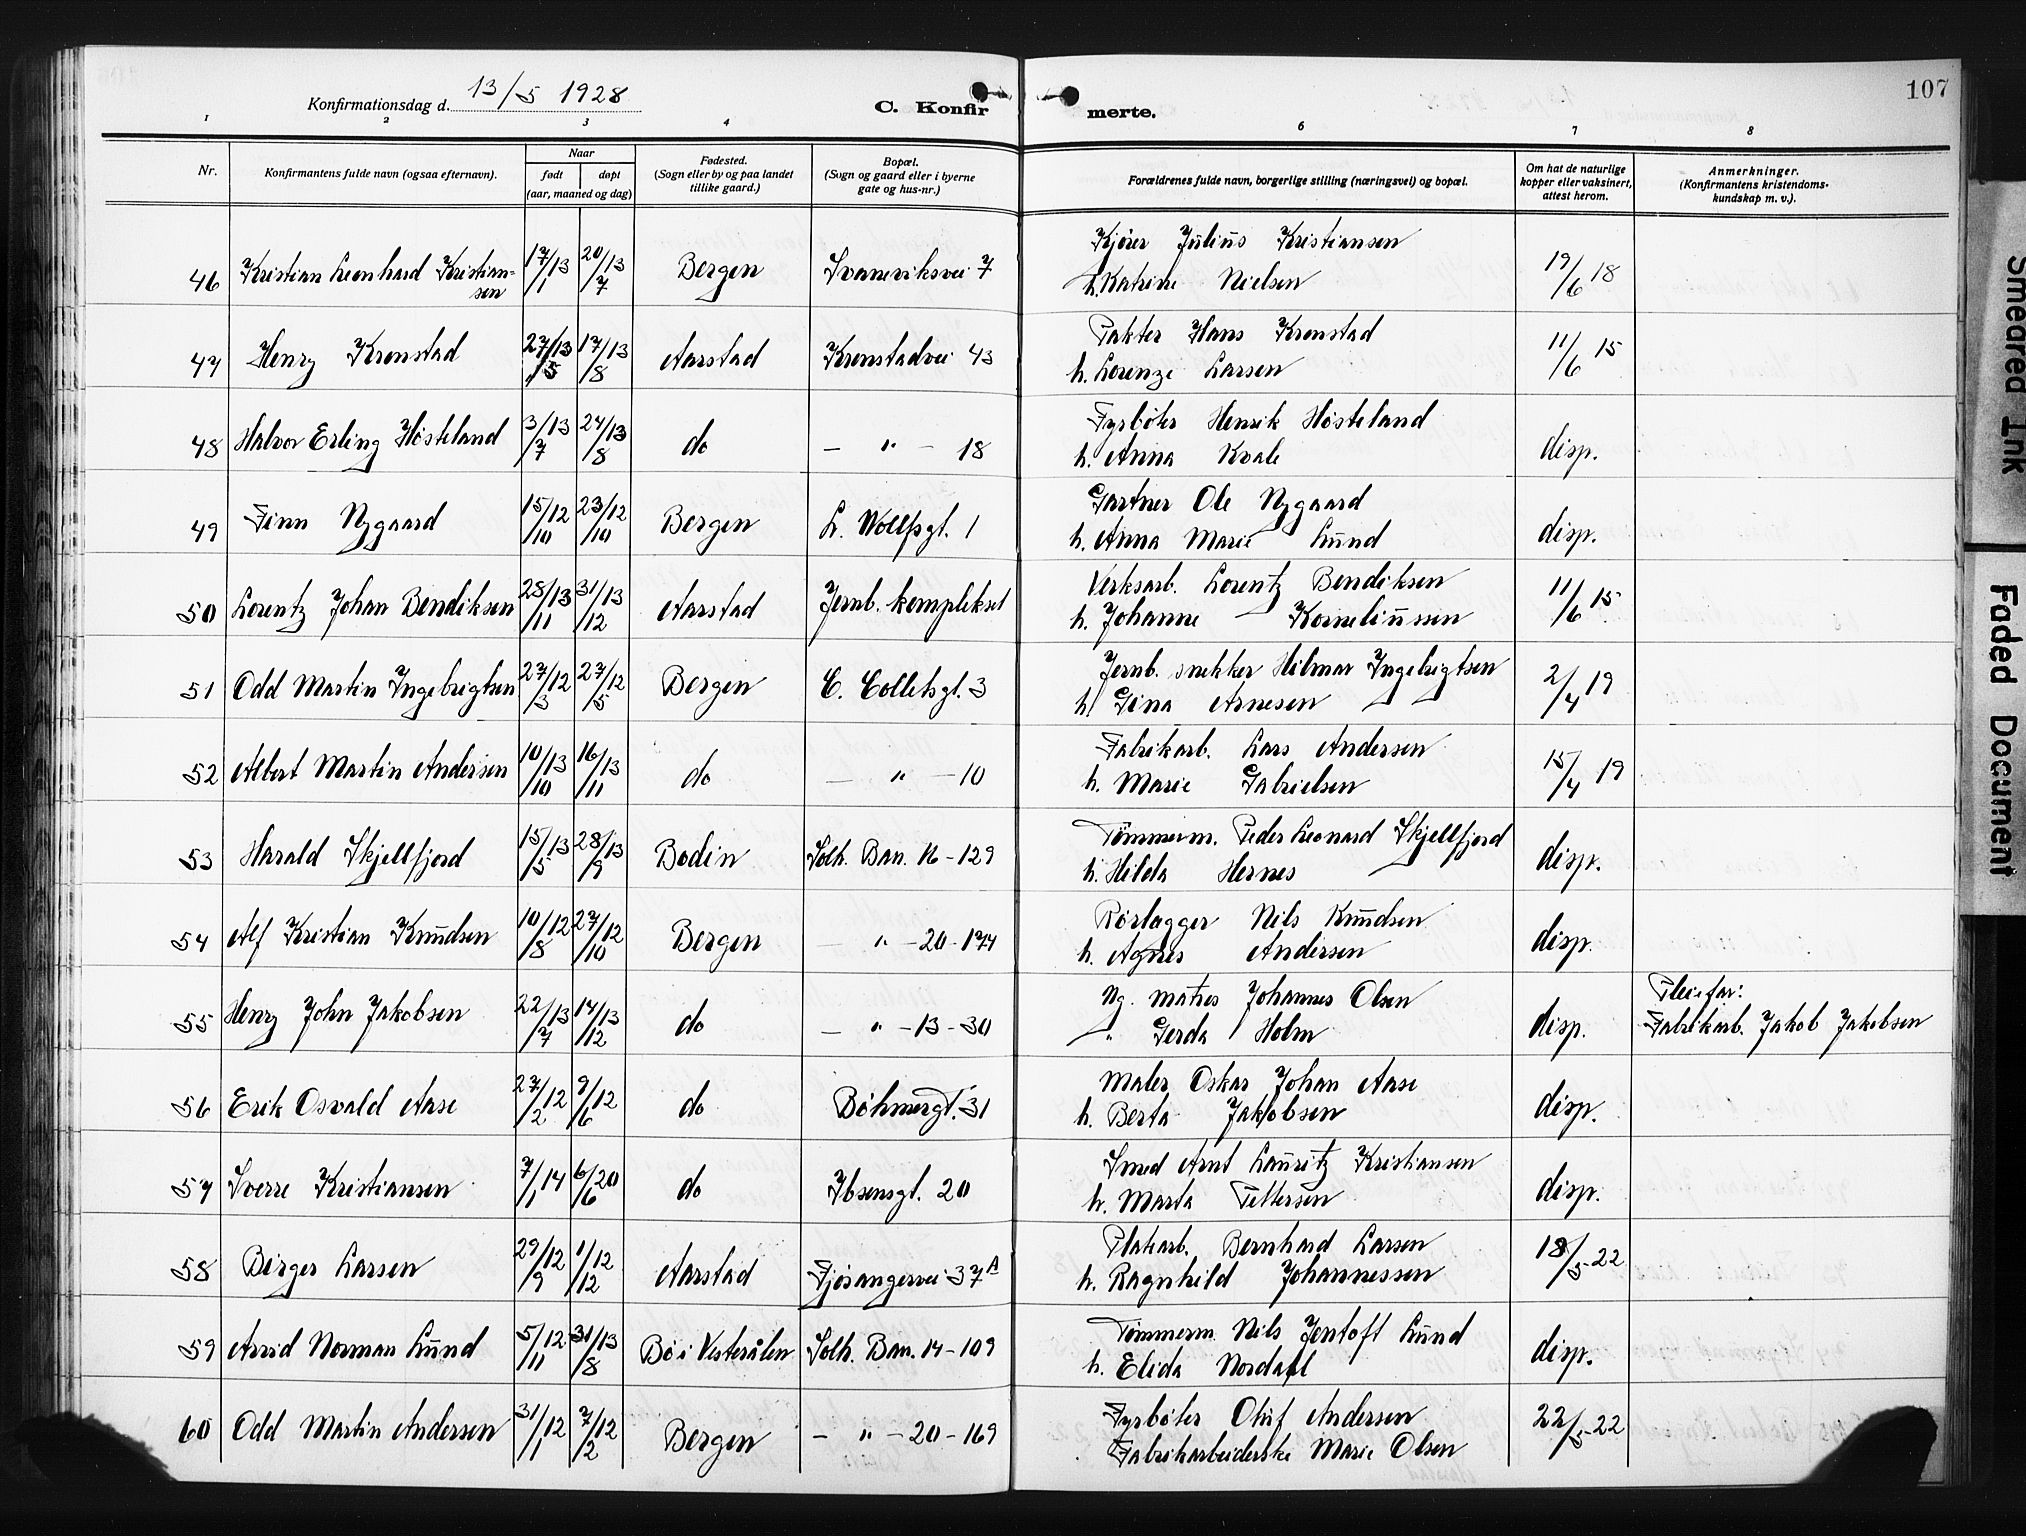 107
Konfirmationsdag d. 13/5 1928
C. Konfirmerte.
1 2 3 4 6 7 8
Nr. Konfirmantens fulde navn (ogsaa efternavn). Naar født døpt (aar, maaned og dag) Fødested. (Sogn eller by og paa landet tillike gaard.) Bopæl. (Sogn og gaard eller i byerne gate og hus-nr.) Forældrenes fulde navn, borgerlige stilling (næringsvei) og bopæl. Om hat de naturlige kopper eller vaksinert, attest herom. Anmerkninger. (Konfirmantens kristendoms-kundskap m. v.).
46 Kristian Leonhard Kristiansen 17/1 13 20/7 13 Bergen Svaneviksvei 7 Kjører Julius Kristiansen h. Katrine Nielsen 19/6 18
47 Henry Kronstad 27/5 13 17/8 13 Aarstad Kronstadvei 43 Pakter Hans Kronstad h. Lorenze Larsen 11/6 15
48 Halvor Erling Høsteland 3/7 13 24/8 13 do — " — 18 Fyrbøter Henrik Høsteland h. Anna Kvale disp.
49 Finn Nygaard 15/10 12 23/10 12 Bergen L. Wolffsgt. 1 Gartner Ole Nygaard h. Anna Marie Lund disp.
50 Lorentz Johan Bendiksen 28/11 13 31/12 13 Aarstad Jernb. komplekset Verksarb. Lorentz Bendiksen h. Johanne — Korneliussen 11/6 15
51 Odd Martin Ingebrigtsen 27/3 12 27/5 12 Bergen C. Colletsgt. 3 Jernb. snekker Hilmar Ingebrigtsen h. Gina Arnesen 2/4 19
52 Albert Martin Andersen 10/10 13 16/11 13 do — " — 10 Fabrikarb. Lars Andersen h. Marie Gabrielsen 15/4 19
53 Harald Skjellfjord 15/5 13 28/9 13 Bodin Solh. Ban. 16 - 129 Tømmerm. Peder Leonard Skjellfjord h. Hilda Hernes disp.
54 Alf Kristian Knudsen 10/8 12 27/10 12 Bergen — " — 20 - 174 Rørlægger Nils Knudsen h. Agnes Andersen disp.
55 Henry John Jakobsen 22/7 13 14/12 13 do — " — 13 - 30 Ug. matros Johannes Olsen " Gerda Holm disp. Pleiefar: Fabrikarb. Jakob Jakobsen
56 Erik Osvald Aase 27/2 12 9/6 12 do Bøhmergt. 31 Maler Oskar Johan Aase h. Berta Jakobsen disp.
57 Sverre Kristiansen 7/1 14 6/6 20 do Ibsensgt. 20 Smed Arnt Lauritz Kristiansen h. Marta Pettersen disp.
58 Birger Larsen 29/9 12 1/12 12 Aarstad Fjøsangervei 37 A Platearb. Bernhard Larsen h. Ragnhild Johannessen 18/5 22
59 Arvid Norman Lund 5/11 12 31/8 13 Bø i Vesterålen Solh. Ban. 14 - 109 Tømmerm. Nils Jentoft Lund h. Elida Nordahl disp.
60 Odd Martin Andersen 31/1 12 7/2 12 Bergen — " — 20 - 169 Fyrbøter Oluf Andersen Fabrikarbeiderske Marie Olsen 22/5 22
Smeared Ink
Faded Document